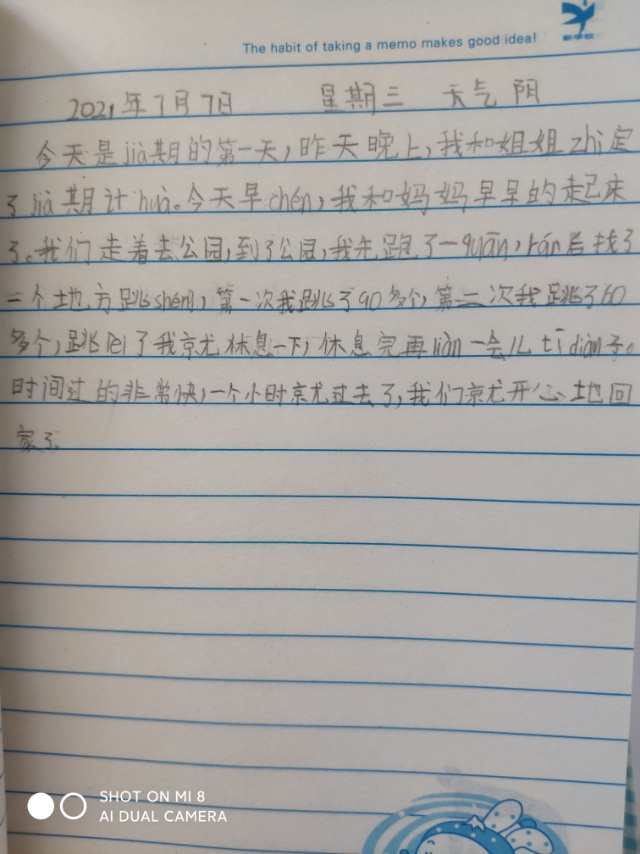 The habit of taking a memo makes good idea!
新学校
2021年7月7日 星期三 天气 阴
今天是jià期的第一天,昨天晚上,我和姐姐zhì定
了jià期计huà。今天早chén,我和妈妈早早的起床
了。我们走着去公园,到了公园,我先跑了一quān,rán后找了
一个地方跳shéng,第一次我跳了90多个,第二次我跳了60
多个,跳lèi了我就休息一下,休息完再liàn一会儿tī diàn子。
时间过的非常快,一个小时就过去了,我们就开心地回
家了。
SHOT ON MI 8
AI DUAL CAMERA